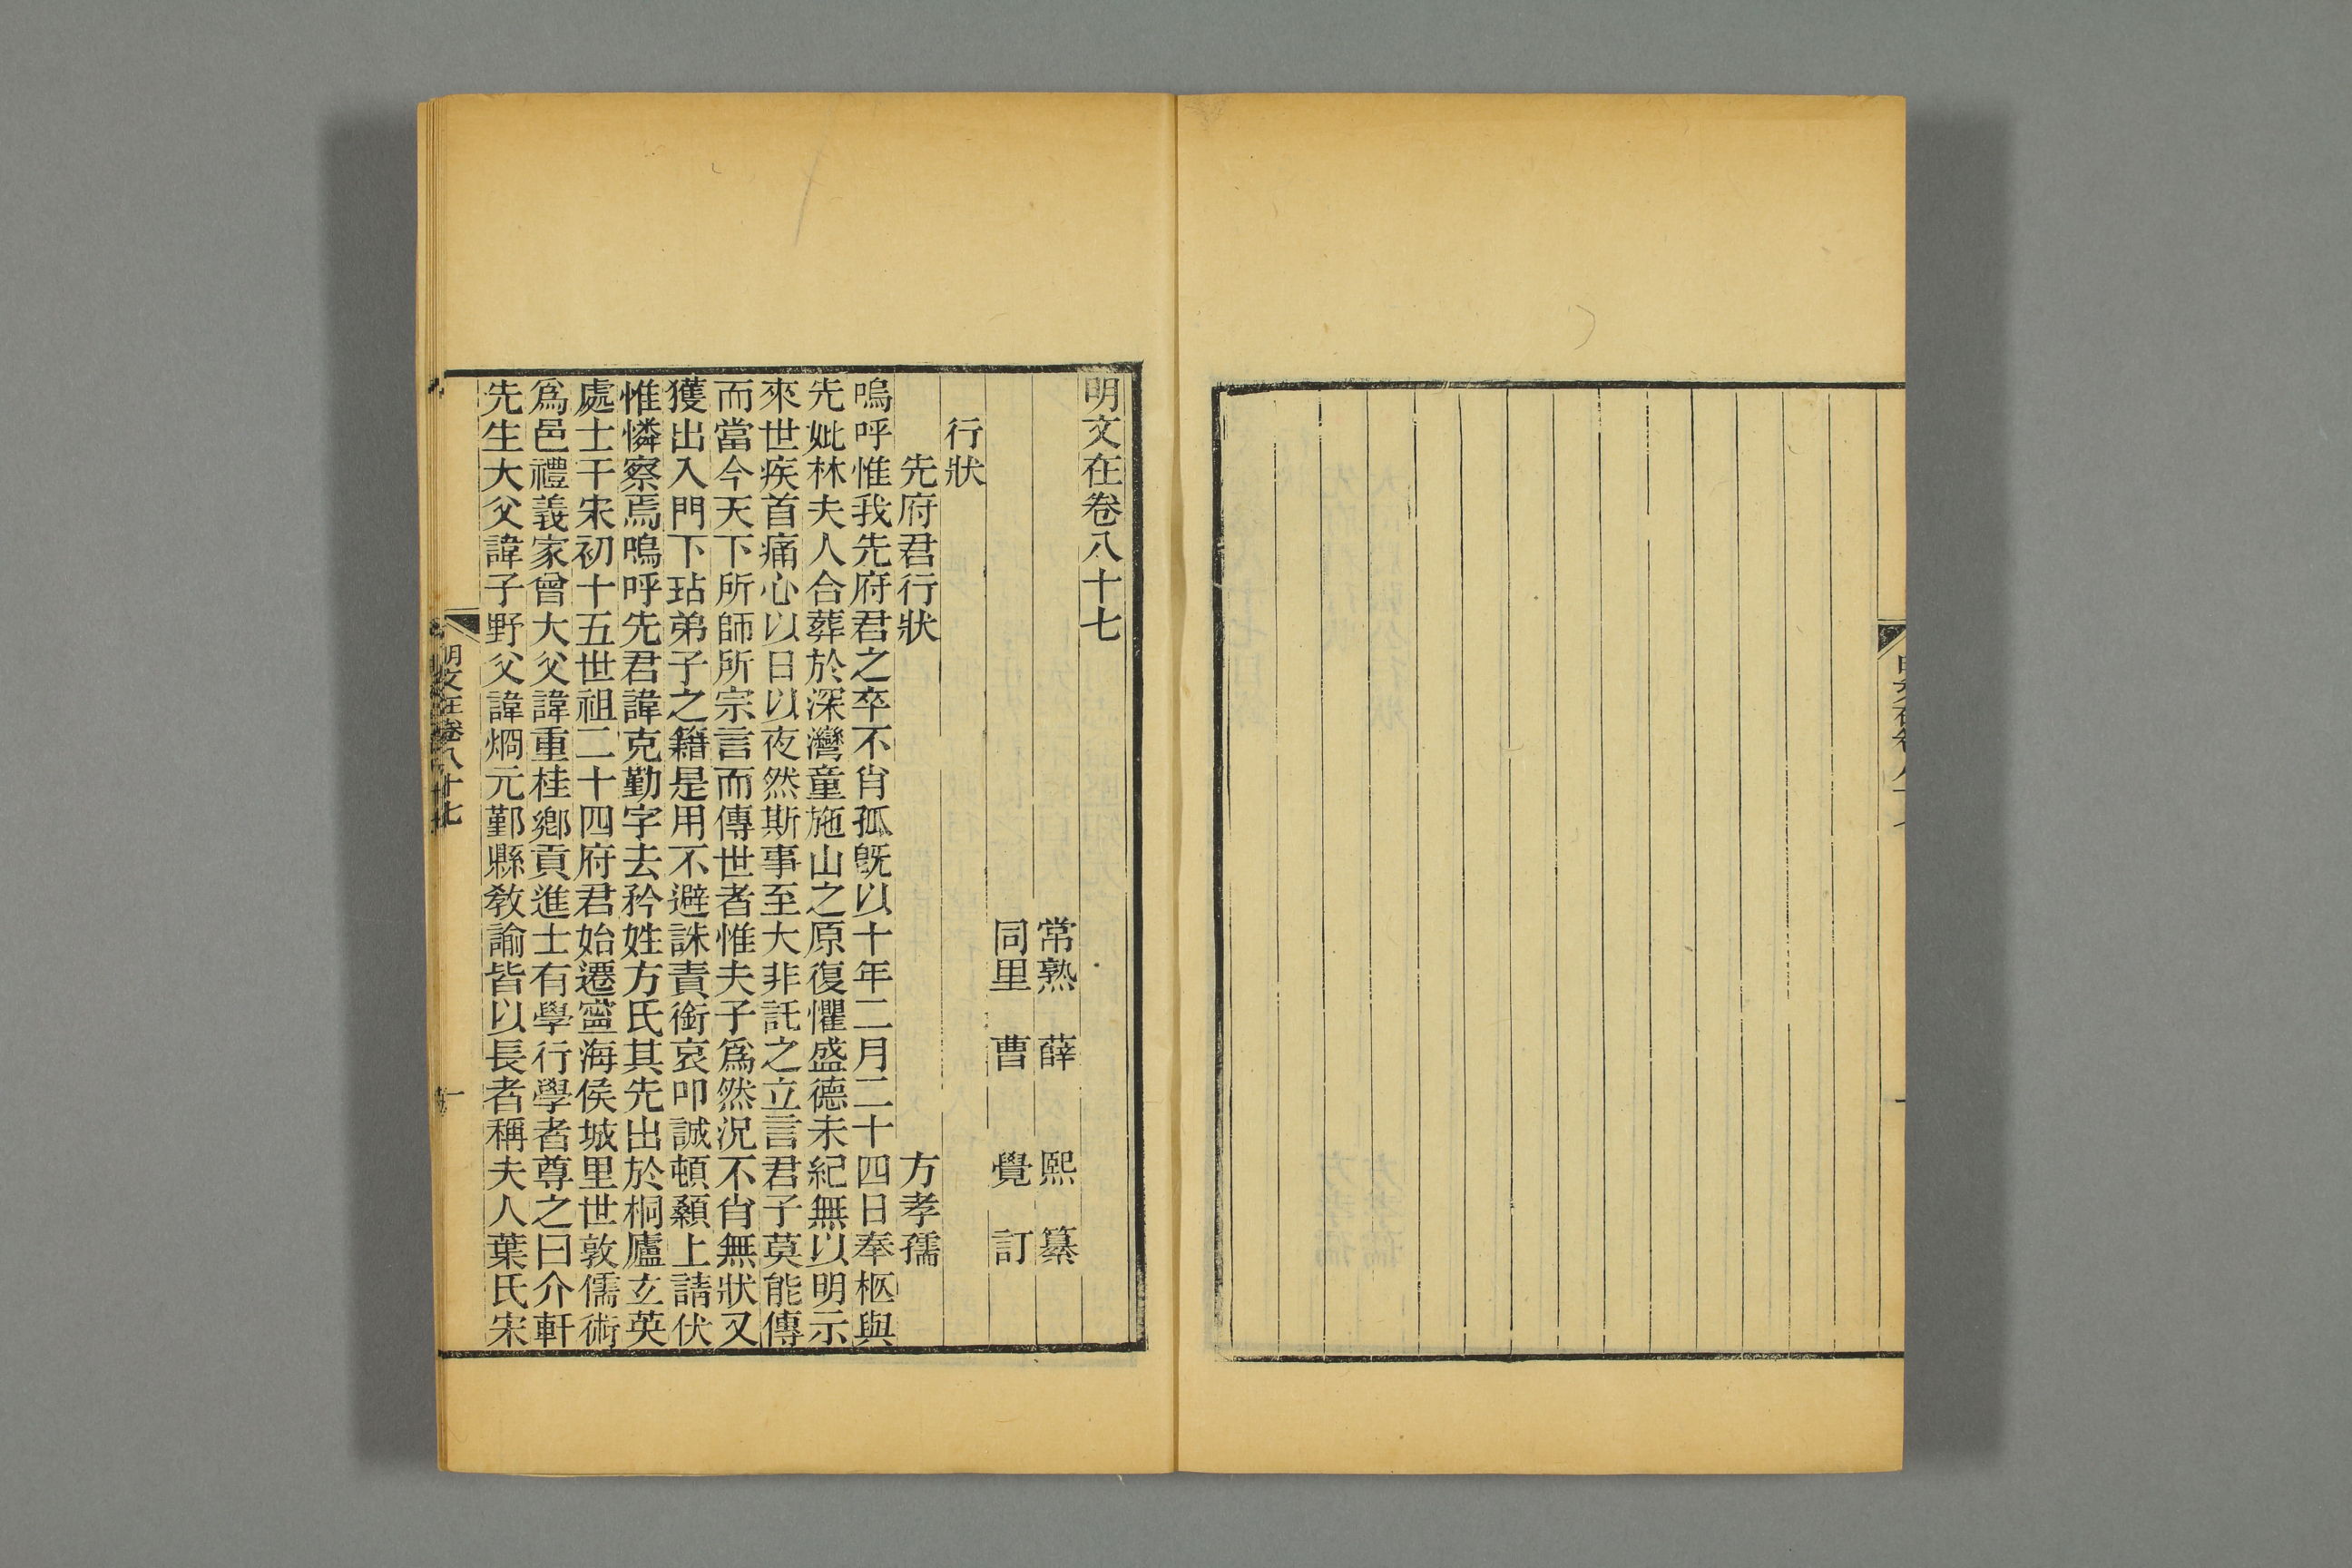 明文在卷八十七
常熟 薛 熙 纂
同里 曹 覺 訂
行狀
先府君行狀 方孝孺
嗚呼惟我先府君之卒不肖孤旣以十年二月二十四日奉柩與
先妣林夫人合葬於深灣童施山之原復懼盛德未紀無以明示
來世疾首痛心以日以夜然斯事至大非託之立言君子莫能傳
而當今天下所師所宗言而傳世者惟夫子爲然況不肖無狀又
獲出入門下玷弟子之籍是用不避誅責銜哀叩誠頓顙上請伏
惟憐察焉嗚呼先君諱克勤字去矜姓方氏其先出於桐廬玄英
處士干宋初十五世祖二十四府君始遷寧海侯城里世敦儒術
爲邑禮義家曾大父諱重桂鄉貢進士有學行學者尊之曰介軒
先生大父諱子野父諱烱元鄞縣敎諭皆以長者稱夫人葉氏宋
明文在卷八十七
一